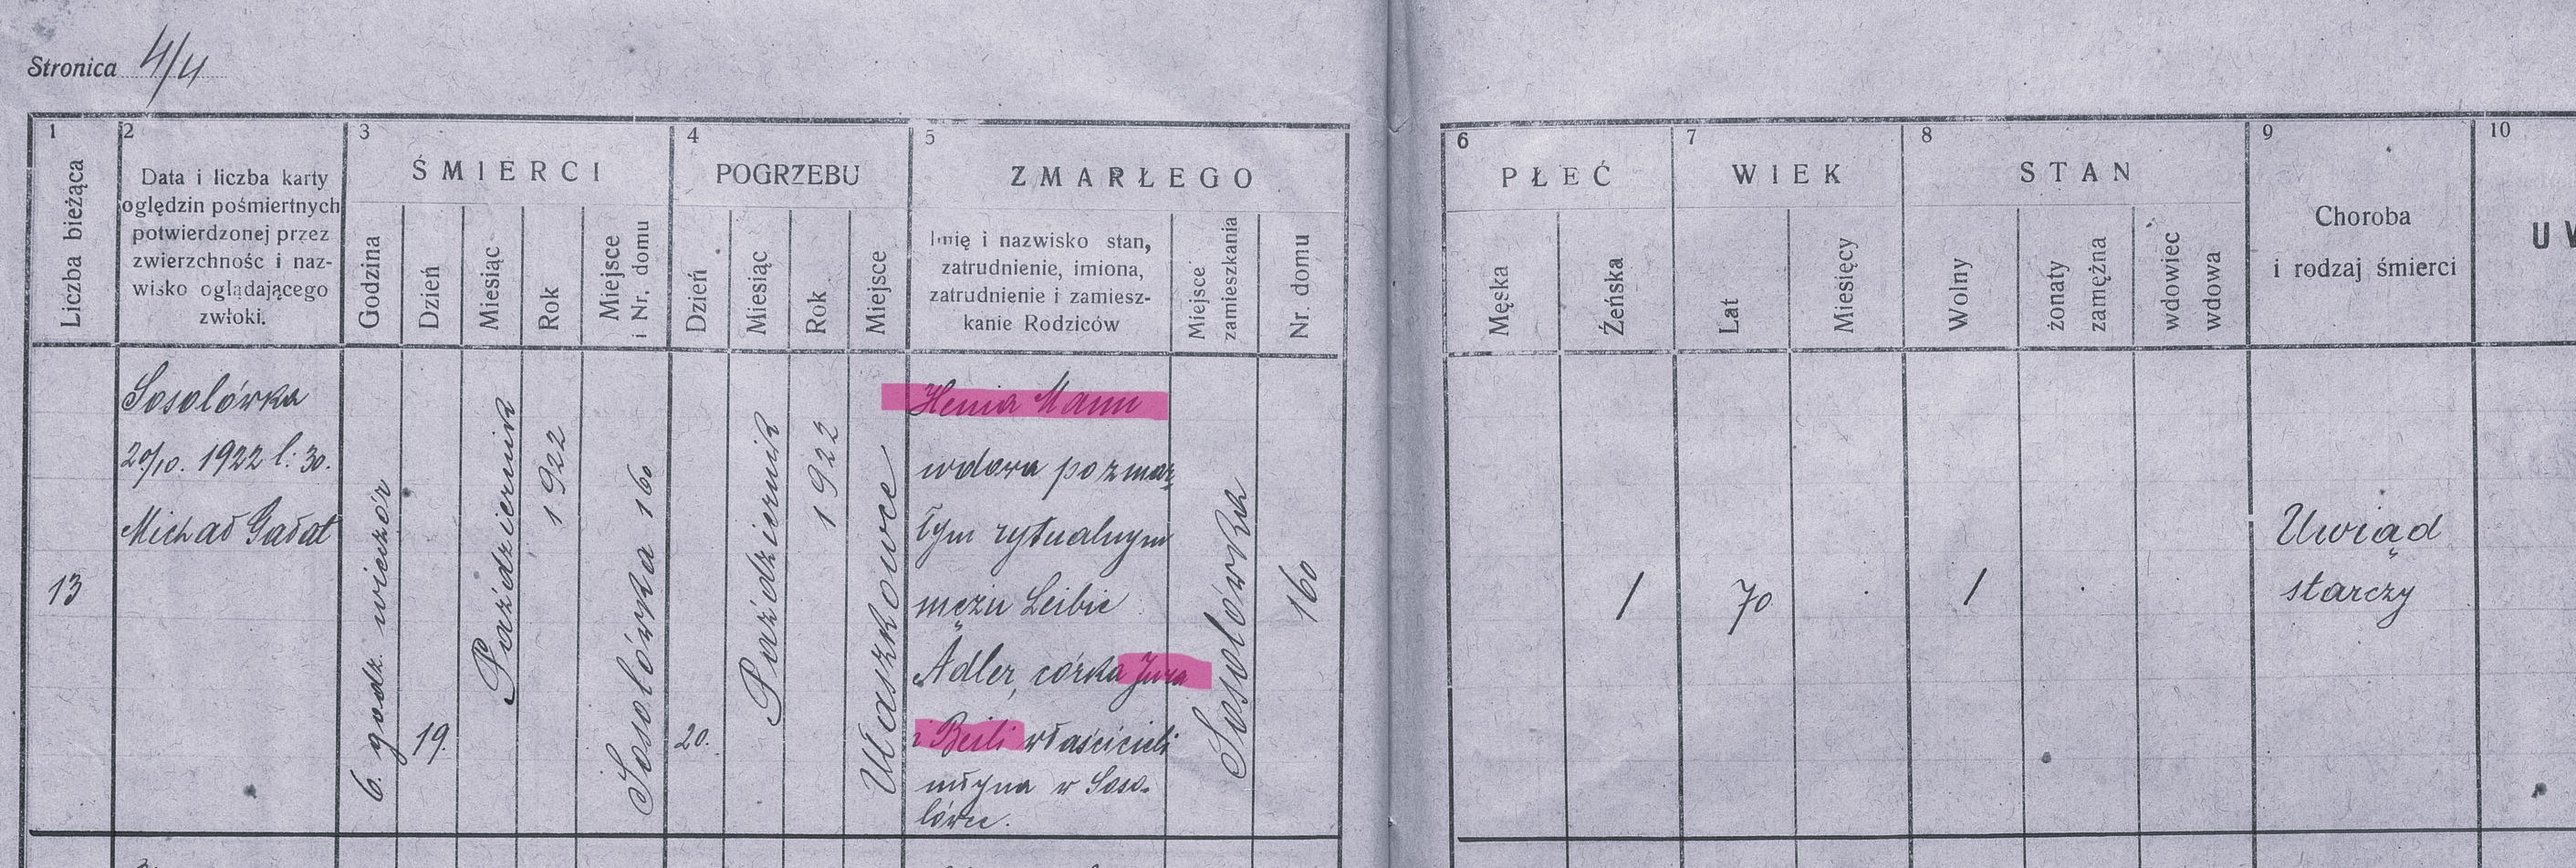 Stronica 4/4
1
2
3
4
5
6
7
8
9
10
Liczba bieżąca
Data i liczba karty
oględzin pośmiertnych
potwierdzonej przez
zwierzchnośc i naz-
wisko oglądającego
zwłoki.
ŚMIERCI
Godzina
Dzień
Miesiąc
Rok
Miejsce
i Nr. domu
POGRZEBU
Dzień
Miesiąc
Rok
Miejsce
ZMARŁEGO
Imię i nazwisko stan,
zatrudnienie, imiona,
zatrudnienie i zamiesz-
kanie Rodziców
Miejsce
zamieszkania
Nr. domu
PŁEĆ
Męska
Żeńska
WIEK
Lat
Miesięcy
STAN
Wolny
żonaty
zamężna
wdowiec
wdowa
Choroba
i rodzaj śmierci
13
Sosolówka
20/10. 1922 l: 30.
Michał Gałat
6. godz. wieczór
19.
Październik
1922
Sosolówka 160
20.
Październik
1922
Ułaszkowce
Henia Mann
wdowa po zmar
łym rytualnym
mężu Leibie
Adler, córka
i Beili właścicieli
młyna w Soso-
lówce.
Sosolówka
160
1
70
1
Uwiąd
starczy